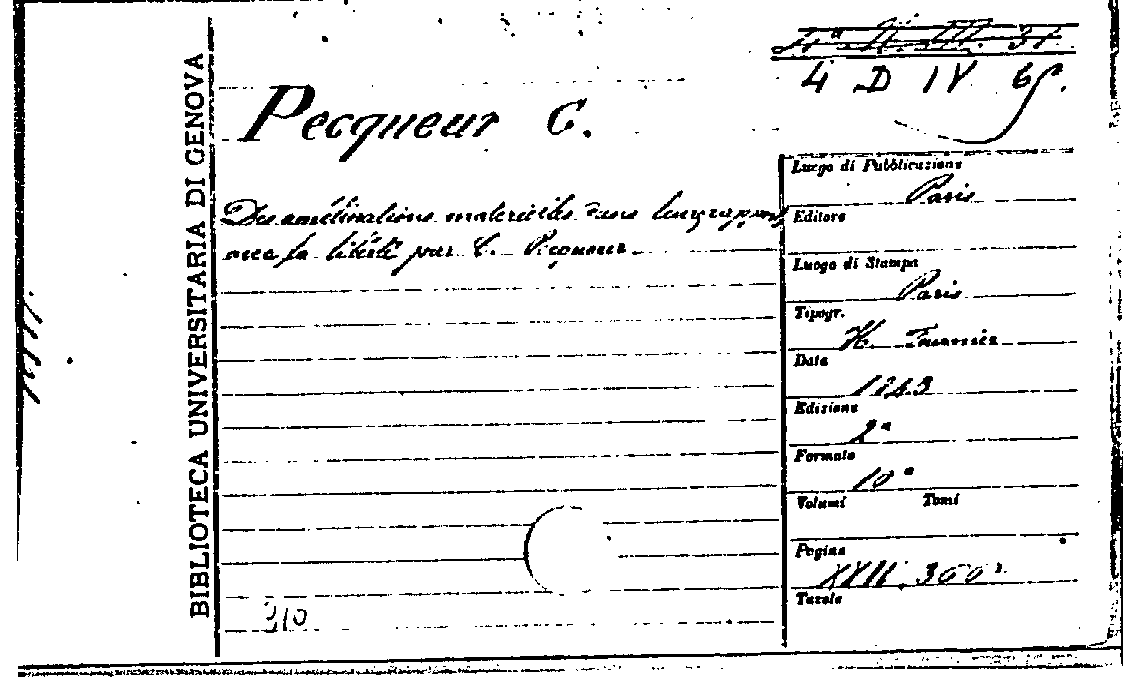 4 D IV 65.
BIBLIOTECA UNIVERSITARIA DI GENOVA
Pecqueur C.
Des améliorations materielles dans leurs rapports
avec la liberté par C. Pecqueur
Luogo di Pubblicazione
Paris
Editore
Luogo di Stampa
Paris
Tipogr.
H. Fournier
Data
1843
Edizione
2ª
Formato
Volumi Tomi
Pagine
XXII. 360
Tavole
210